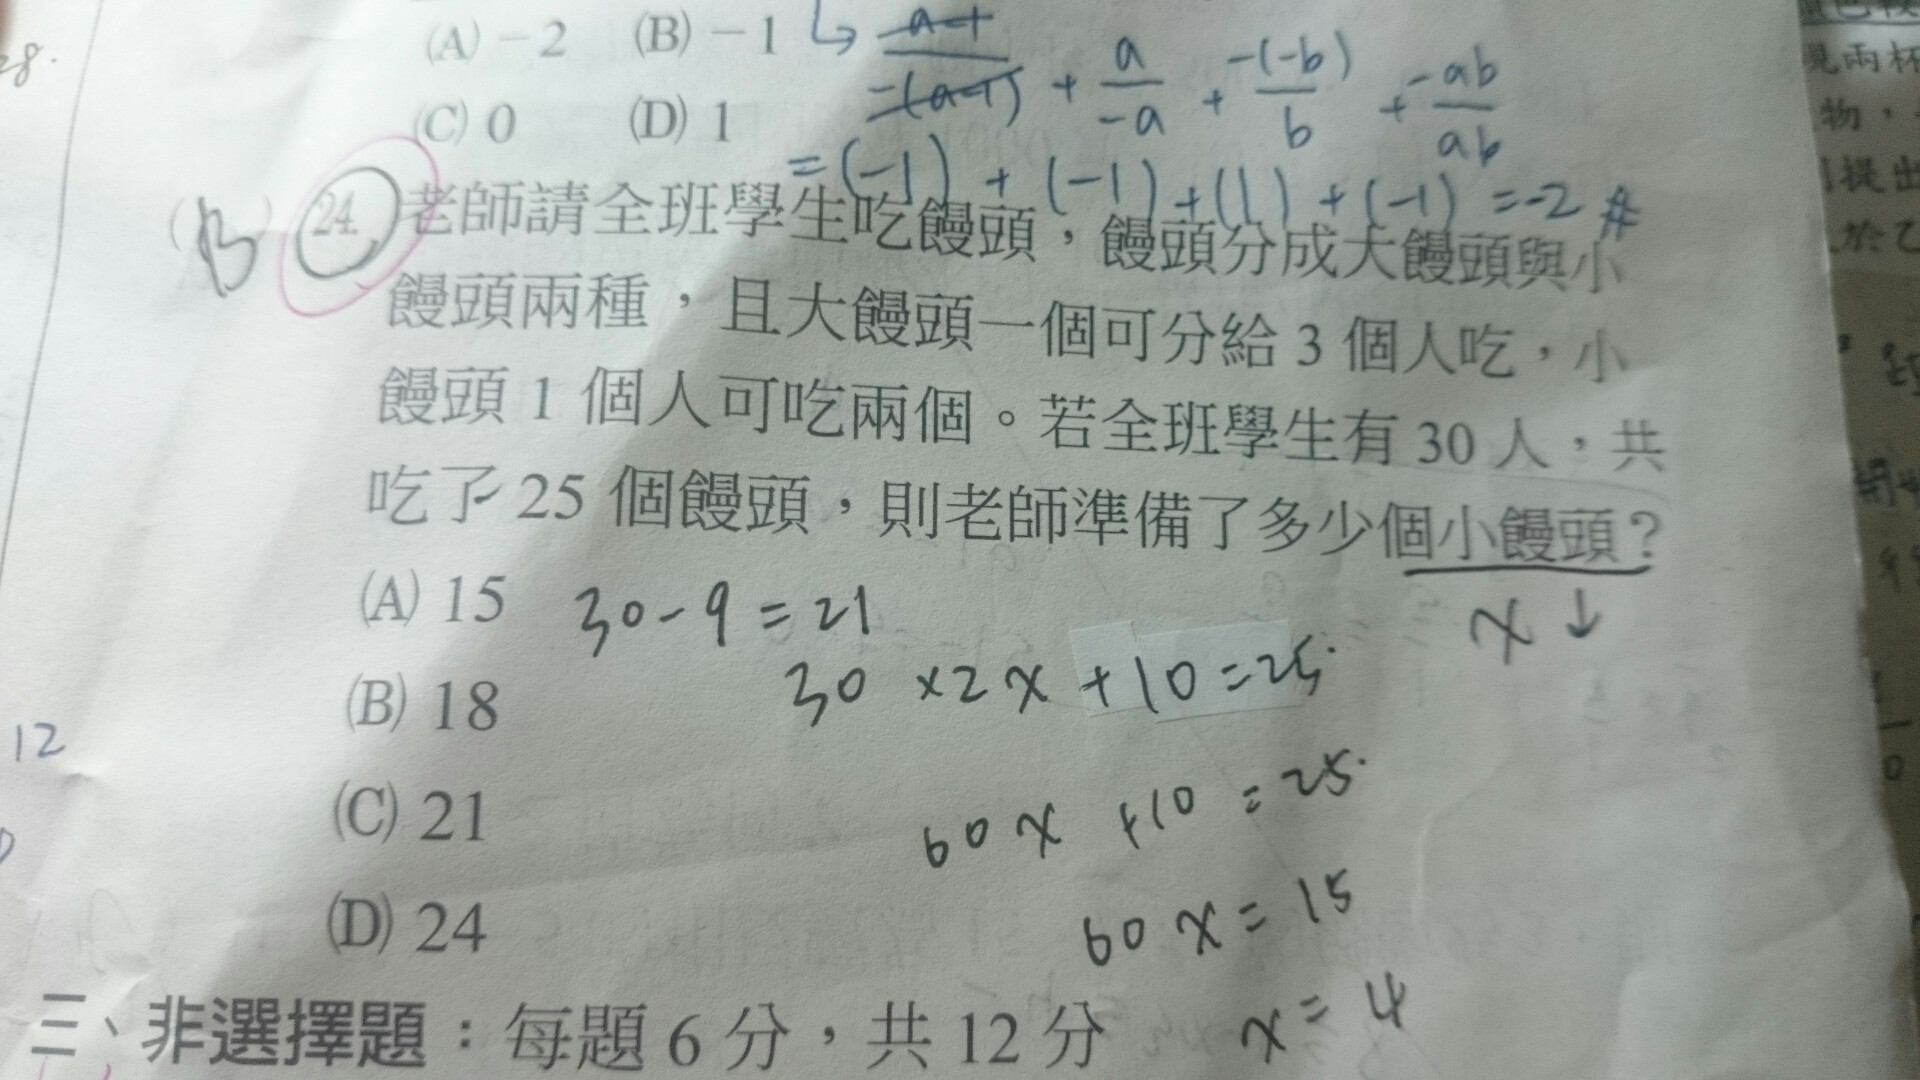 28.
(A) －2 (B) －1
(C) 0 (D) 1
↳ a-1/-(a-1) + a/-a + -(-b)/b + -ab/ab
= (-1) + (-1) + (1) + (-1) = -2 #
(B) 24. 老師請全班學生吃饅頭，饅頭分成大饅頭與小
饅頭兩種，且大饅頭一個可分給 3 個人吃，小
饅頭 1 個人可吃兩個。若全班學生有 30 人，共
吃了 25 個饅頭，則老師準備了多少個小饅頭？
(A) 15
(B) 18
(C) 21
(D) 24
x ↓
30-9=21
30 ×2x +10=25.
60x +10 =25.
60x=15
x=4
12
三、非選擇題：每題 6 分，共 12 分
現兩杯
物，
提出
於乙